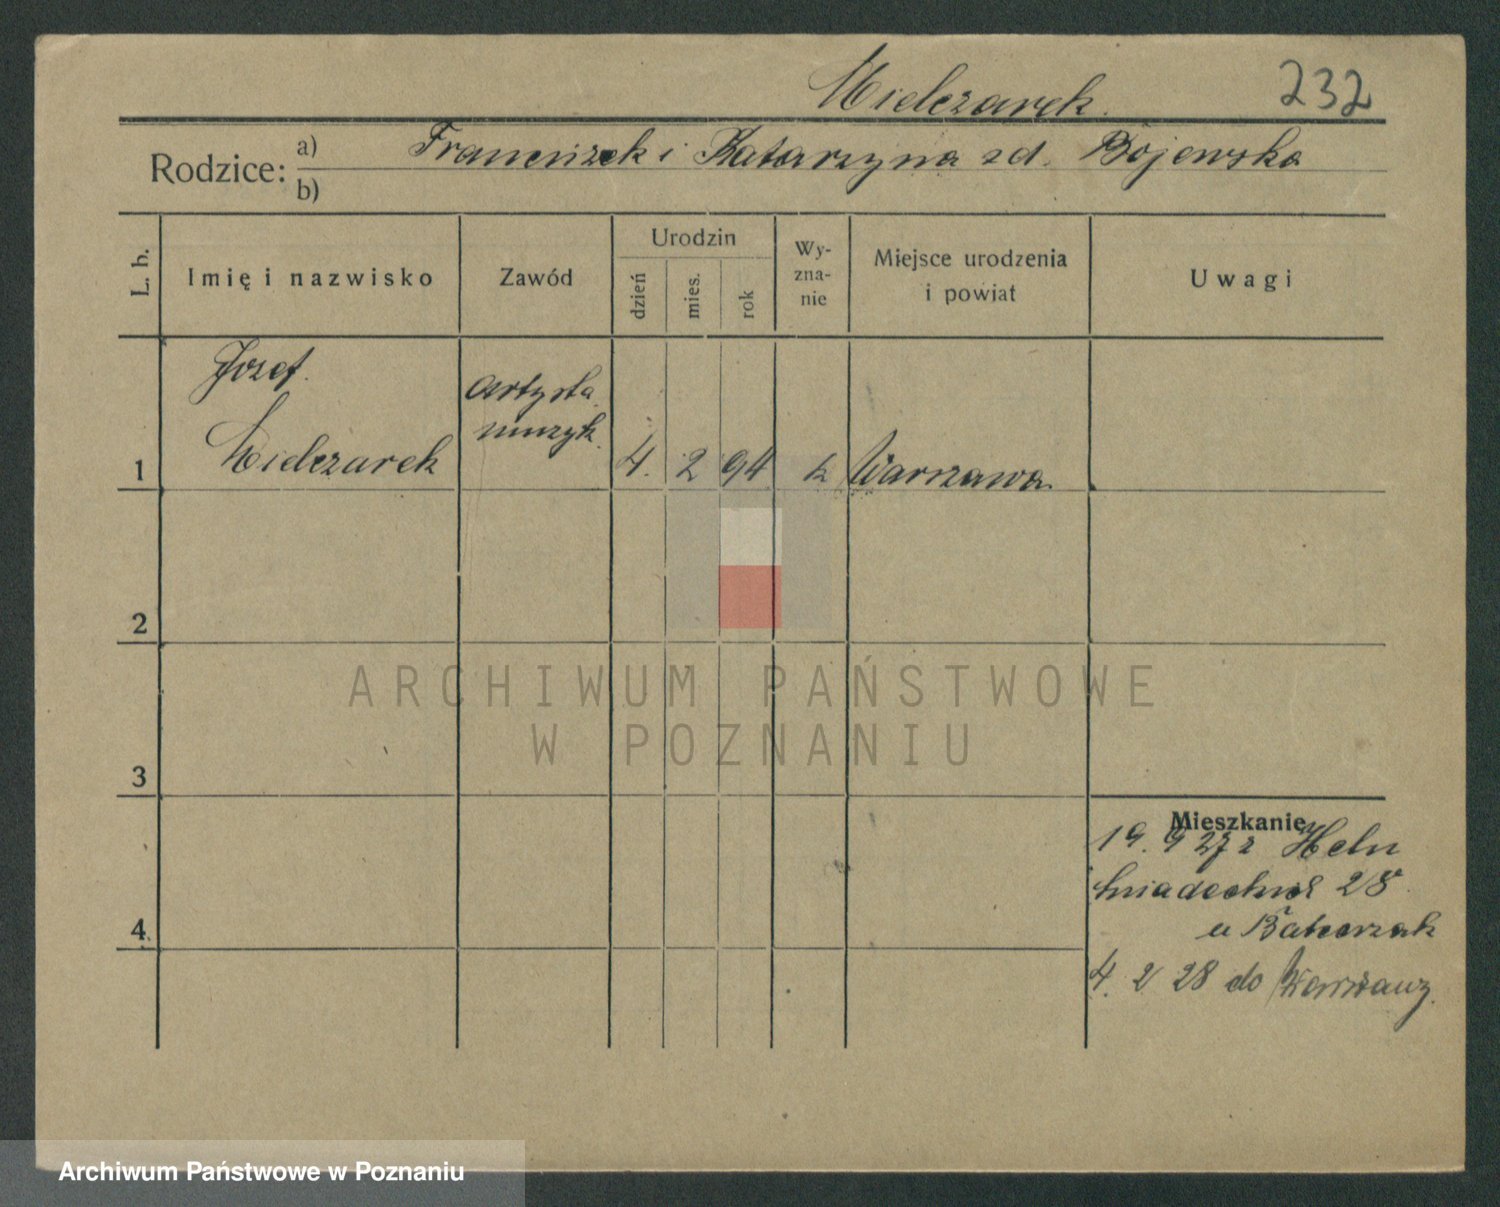 Mielczarek. 232
Rodzice: a) Franciszek i Katarzyna zd. Bojewska
b)
L. b.
Imię i nazwisko
Zawód
Urodzin
dzień
mies.
rok
Wy-
zna-
nie
Miejsce urodzenia
i powiat
Uwagi
Józef.
Mielczarek
artysta
muzyk.
1
4. 2 94 k Warszawa.
2
ARCHIWUM PAŃSTWOWE
W POZNANIU
3
Mieszkanie
19. 9 27 z
28
4
u
4. 2 28 do Warszawy.
Archiwum Państwowe w Poznaniu